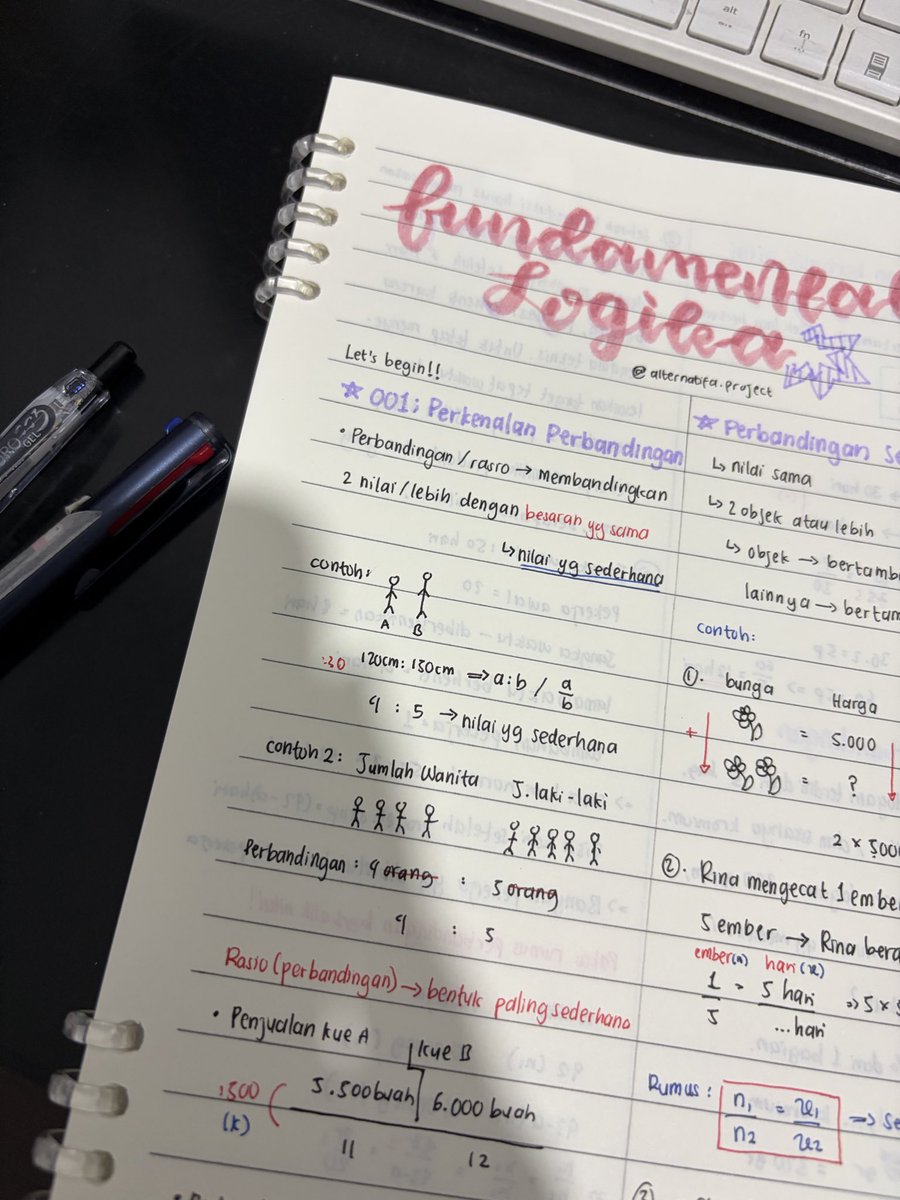 alt
fn
fundamental
Logika
@alternatifa.project
Let's begin!!
001; Perkenalan Perbandingan
• Perbandingan/rasio → membandingkan
2 nilai/lebih dengan besaran yg sama
↳ nilai yg sederhana
contoh:
A B
:30 120cm : 150cm ⇒ a:b / a/b
4 : 5 → nilai yg sederhana
contoh 2: Jumlah Wanita J. laki-laki
Perbandingan : 4 orang : 5 orang
4 : 5
Rasio (perbandingan) → bentuk paling sederhana
• Penjualan kue A kue B
:500 (k) 5.500 buah 6.000 buah
11 12
Perbandingan Se
↳ nilai sama
↳ 2 objek atau lebih
↳ objek → bertamb
lainnya → bertam
contoh:
①. bunga Harga
+ = 5.000
= ?
2 × 5000
②. Rina mengecat 1 embe
5 ember → Rina bera
ember(n) hari(x)
1/5 = 5 hari/...hari ⇒ 5 ×
Rumus : n₁/n₂ = x₁/x₂ ⇒ Se